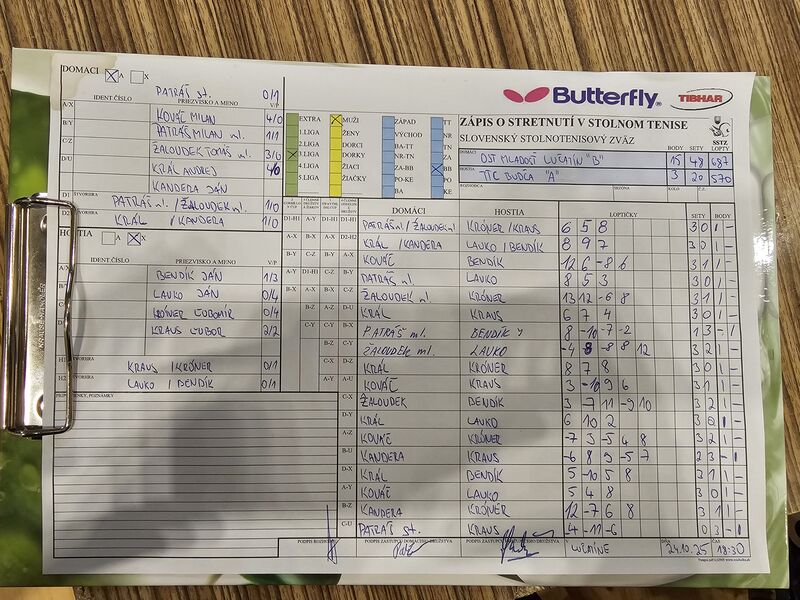 DOMACI A X
PATRÁŠ st. 0/1
IDENT.ČÍSLO PRIEZVISKO A MENO V/P
A/X KOVÁČ MILAN 4/0
B/Y PATRÁŠ MILAN ml. 1/1
ŽALOUDEK TOMÁŠ ml. 3/0
D/U KRÁĽ ANDREJ 4/0
KANDERA JÁN
D1 PATRÁŠ ml. / ŽALOUDEK ml. 1/0
D2 KRÁĽ / KANDERA 1/0
HOSTIA A X
IDENT.ČÍSLO PRIEZVISKO A MENO V/P
BENDÍK JÁN 1/3
LAUKO JÁN 0/4
KRÖNER ĽUBOMÍR 0/4
KRAUS ĽUBOR 2/2
KRAUS / KRÖNER 0/1
LAUKO / BENDÍK 0/1
PRIPOMIENKY, POZNÁMKY
EXTRA MUŽI ZÁPAD TT
1.LIGA ŽENY VÝCHOD NR
2.LIGA DORCI BA-TT TN
3.LIGA DORKY TN-NR ZA
4.LIGA ŽIACI ZA-BB BB
5.LIGA ŽIAČKY PO-KE PO
KE
Butterfly TIBHAR
ZÁPIS O STRETNUTÍ V STOLNOM TENISE
SLOVENSKÝ STOLNOTENISOVÝ ZVÄZ SSTZ
BODY SETY LOPTY
DOMÁCI OST MLADOSŤ LUČATÍN "B" 15 48 687
HOSTIA TTC BUDČA "A" 3 20 570
ROZHODCA SEZÓNA KOLO Č.Z.
DOMÁCI HOSTIA LOPTIČKY SETY BODY
PATRÁŠ ml. / ŽALOUDEK ml. KRÖNER / KRAUS 6 5 8 3 0 1 -
KRÁĽ / KANDERA LAUKO / BENDÍK 8 9 7 3 0 1 -
KOVÁČ BENDÍK 12 6 -8 6 3 1 1 -
PATRÁŠ ml. LAUKO 8 5 3 3 0 1 -
ŽALOUDEK ml. KRÖNER 13 12 -6 8 3 1 1 -
KRÁĽ KRAUS 6 7 4 3 0 1 -
PATRÁŠ ml. BENDÍK 8 -10 -7 -2 1 3 - 1
ŽALOUDEK ml. LAUKO -4 8 -8 8 12 3 2 1 -
KRÁĽ KRÖNER 8 7 8 3 0 1 -
KOVÁČ KRAUS 3 -10 9 6 3 1 1 -
C-X ŽALOUDEK BENDÍK 3 -7 11 -9 10 3 2 1 -
D-Y KRÁĽ LAUKO 6 10 2 3 0 1 -
A-Z KOVÁČ KRÖNER -7 3 -5 4 8 3 2 1 -
B-U KANDERA KRAUS -6 8 9 -5 -7 2 3 - 1
D-X KRÁĽ BENDÍK 5 -10 5 8 3 1 1 -
A-Y KOVÁČ LAUKO 5 4 8 3 0 1 -
B-Z KANDERA KRÖNER 12 -7 6 8 3 1 1 -
C-U PATRÁŠ st. KRAUS -4 -11 -6 0 3 - 1
PODPIS ZÁSTUPCU DOMÁCEHO DRUŽSTVA
V LUČATÍNE DŇA 24.10.25 ČAS 18:30